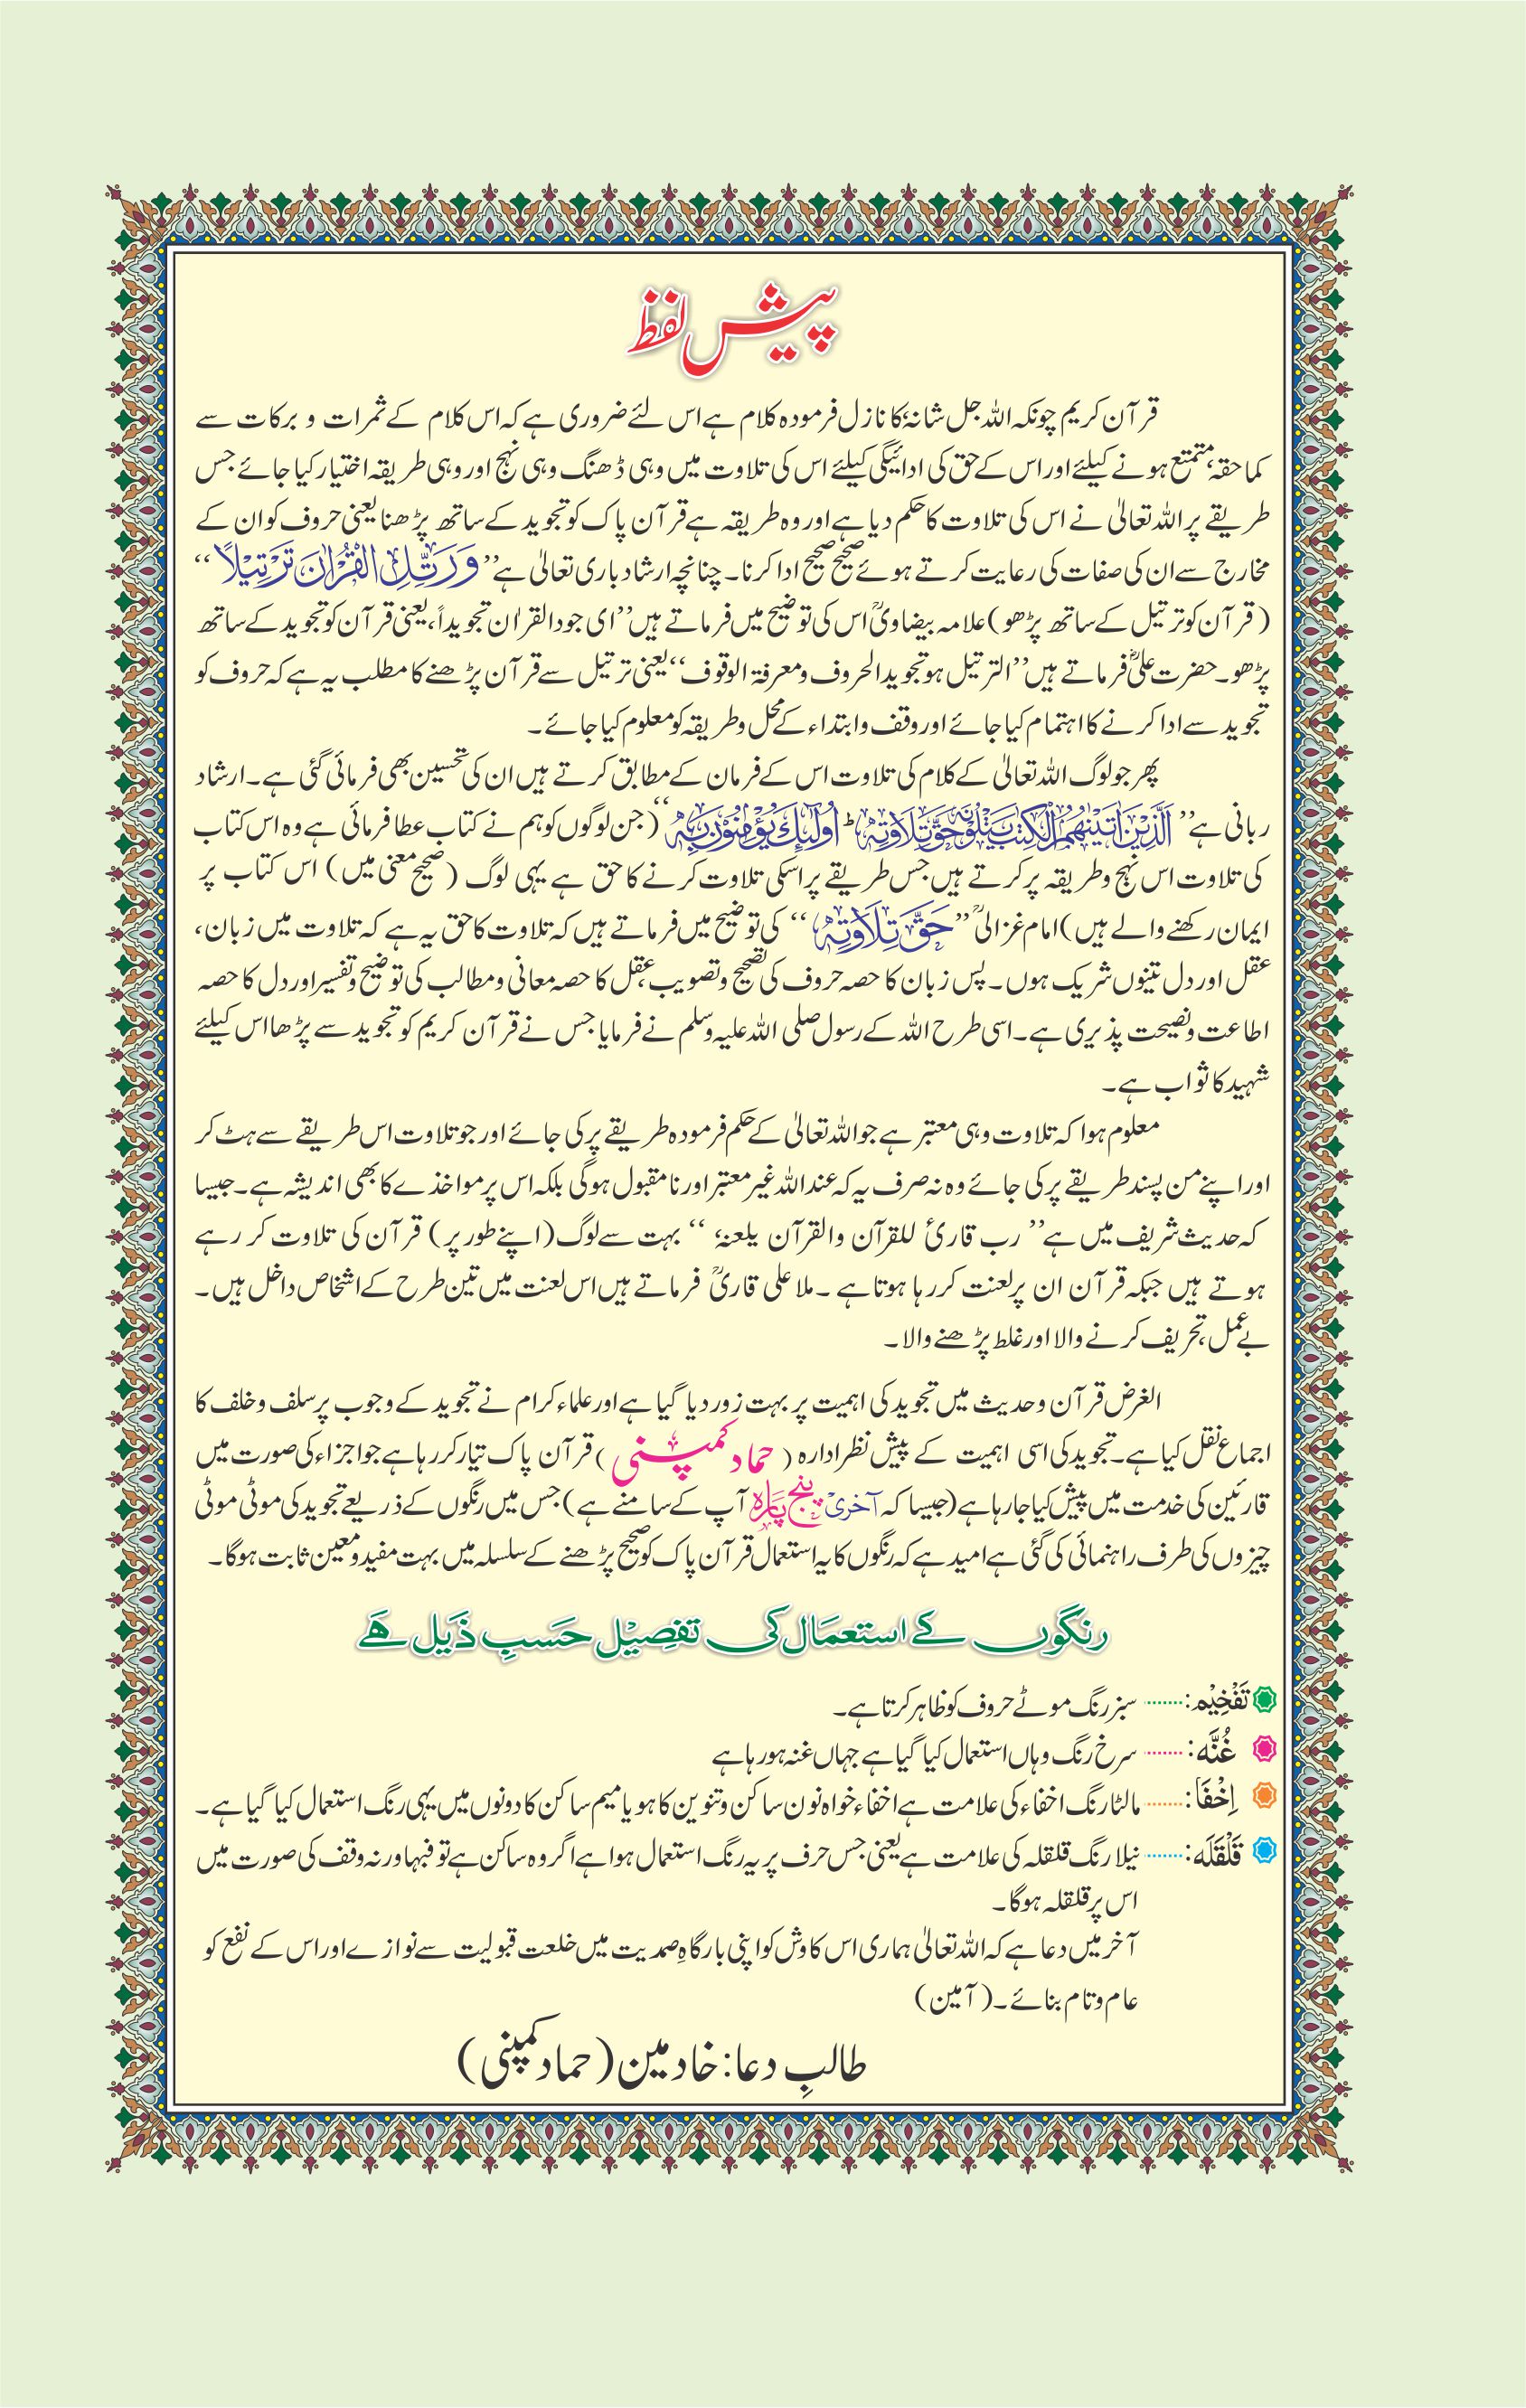 پیش لفظ
قرآن کریم چونکہ اللہ جل شانہٗ کا نازل فرمودہ کلام ہے اس لئے ضروری ہے کہ اس کلام کے ثمرات و برکات سے
کما حقہٗ متمتع ہونے کیلئے اور اس کے حق کی ادائیگی کیلئے اس کی تلاوت میں وہی ڈھنگ وہی نہج اور وہی طریقہ اختیار کیا جائے جس
طریقے پر اللہ تعالیٰ نے اس کی تلاوت کا حکم دیا ہے اور وہ طریقہ ہے قرآن پاک کو تجوید کے ساتھ پڑھنا یعنی حروف کو ان کے
مخارج سے ان کی صفات کی رعایت کرتے ہوئے صحیح صحیح ادا کرنا۔ چنانچہ ارشاد باری تعالیٰ ہے ’’وَرَتِّلِ الْقُرْاٰنَ تَرْتِیْلًا‘‘
(قرآن کو ترتیل کے ساتھ پڑھو) علامہ بیضاویؒ اس کی توضیح میں فرماتے ہیں ’’ای جود القراٰن تجویداً، یعنی قرآن کو تجوید کے ساتھ
پڑھو۔ حضرت علیؓ فرماتے ہیں ’’الترتیل ہو تجوید الحروف و معرفۃ الوقوف‘‘ یعنی ترتیل سے قرآن پڑھنے کا مطلب یہ ہے کہ حروف کو
تجوید سے ادا کرنے کا اہتمام کیا جائے اور وقف و ابتداء کے محل و طریقہ کو معلوم کیا جائے۔
پھر جو لوگ اللہ تعالیٰ کے کلام کی تلاوت اس کے فرمان کے مطابق کرتے ہیں ان کی تحسین بھی فرمائی گئی ہے۔ ارشاد
ربانی ہے ’’اَلَّذِیْنَ اٰتَیْنٰهُمُ الْکِتٰبَ یَتْلُوْنَهٗ حَقَّ تِلَاوَتِهٖ ؕ اُولٰٓئِكَ یُؤْمِنُوْنَ بِهٖ‘‘ (جن لوگوں کو ہم نے کتاب عطا فرمائی ہے وہ اس کتاب
کی تلاوت اس نہج و طریقہ پر کرتے ہیں جس طریقے پر اسکی تلاوت کرنے کا حق ہے یہی لوگ (صحیح معنی میں) اس کتاب پر
ایمان رکھنے والے ہیں) امام غزالیؒ ’’حَقَّ تِلَاوَتِهٖ‘‘ کی توضیح میں فرماتے ہیں کہ تلاوت کا حق یہ ہے کہ تلاوت میں زبان،
عقل اور دل تینوں شریک ہوں۔ پس زبان کا حصہ حروف کی تصحیح و تصویب، عقل کا حصہ معانی و مطالب کی توضیح و تفسیر اور دل کا حصہ
اطاعت و نصیحت پذیری ہے۔ اسی طرح اللہ کے رسول صلی اللہ علیہ وسلم نے فرمایا جس نے قرآن کریم کو تجوید سے پڑھا اس کیلئے
شہید کا ثواب ہے۔
معلوم ہوا کہ تلاوت وہی معتبر ہے جو اللہ تعالیٰ کے حکم فرمودہ طریقے پر کی جائے اور جو تلاوت اس طریقے سے ہٹ کر
اور اپنے من پسند طریقے پر کی جائے وہ نہ صرف یہ کہ عند اللہ غیر معتبر اور نا مقبول ہوگی بلکہ اس پر مواخذے کا بھی اندیشہ ہے۔ جیسا
کہ حدیث شریف میں ہے ’’رب قاریٔ للقرآن والقرآن یلعنہٗ‘‘ بہت سے لوگ (اپنے طور پر) قرآن کی تلاوت کر رہے
ہوتے ہیں جبکہ قرآن ان پر لعنت کر رہا ہوتا ہے۔ ملا علی قاریؒ فرماتے ہیں اس لعنت میں تین طرح کے اشخاص داخل ہیں۔
بے عمل، تحریف کرنے والا اور غلط پڑھنے والا۔
الغرض قرآن و حدیث میں تجوید کی اہمیت پر بہت زور دیا گیا ہے اور علماء کرام نے تجوید کے وجوب پر سلف و خلف کا
اجماع نقل کیا ہے۔ تجوید کی اسی اہمیت کے پیش نظر ادارہ (حماد کمپنی) قرآن پاک تیار کر رہا ہے جو اجزاء کی صورت میں
قارئین کی خدمت میں پیش کیا جا رہا ہے (جیسا کہ آخری پنج پارہ آپ کے سامنے ہے) جس میں رنگوں کے ذریعے تجوید کی موٹی موٹی
چیزوں کی طرف راہنمائی کی گئی ہے امید ہے کہ رنگوں کا یہ استعمال قرآن پاک کو صحیح پڑھنے کے سلسلہ میں بہت مفید و معین ثابت ہوگا۔
رنگوں کے استعمال کی تفصیل حسبِ ذیل ھے
تَفْخِیْم: ....... سبز رنگ موٹے حروف کو ظاہر کرتا ہے۔
غُنَّہ: ....... سرخ رنگ وہاں استعمال کیا گیا ہے جہاں غنہ ہو رہا ہے
اِخْفَا: ....... مالٹا رنگ اخفاء کی علامت ہے اخفاء خواہ نون ساکن و تنوین کا ہو یا میم ساکن کا دونوں میں یہی رنگ استعمال کیا گیا ہے۔
قَلْقَلَہ: ....... نیلا رنگ قلقلہ کی علامت ہے یعنی جس حرف پر یہ رنگ استعمال ہوا ہے اگر وہ ساکن ہے تو فبہا ورنہ وقف کی صورت میں
اس پر قلقلہ ہوگا۔
آخر میں دعا ہے کہ اللہ تعالیٰ ہماری اس کاوش کو اپنی بارگاہِ صمدیت میں خلعت قبولیت سے نوازے اور اس کے نفع کو
عام و تام بنائے۔ (آمین)
طالبِ دعا: خادمین (حماد کمپنی)